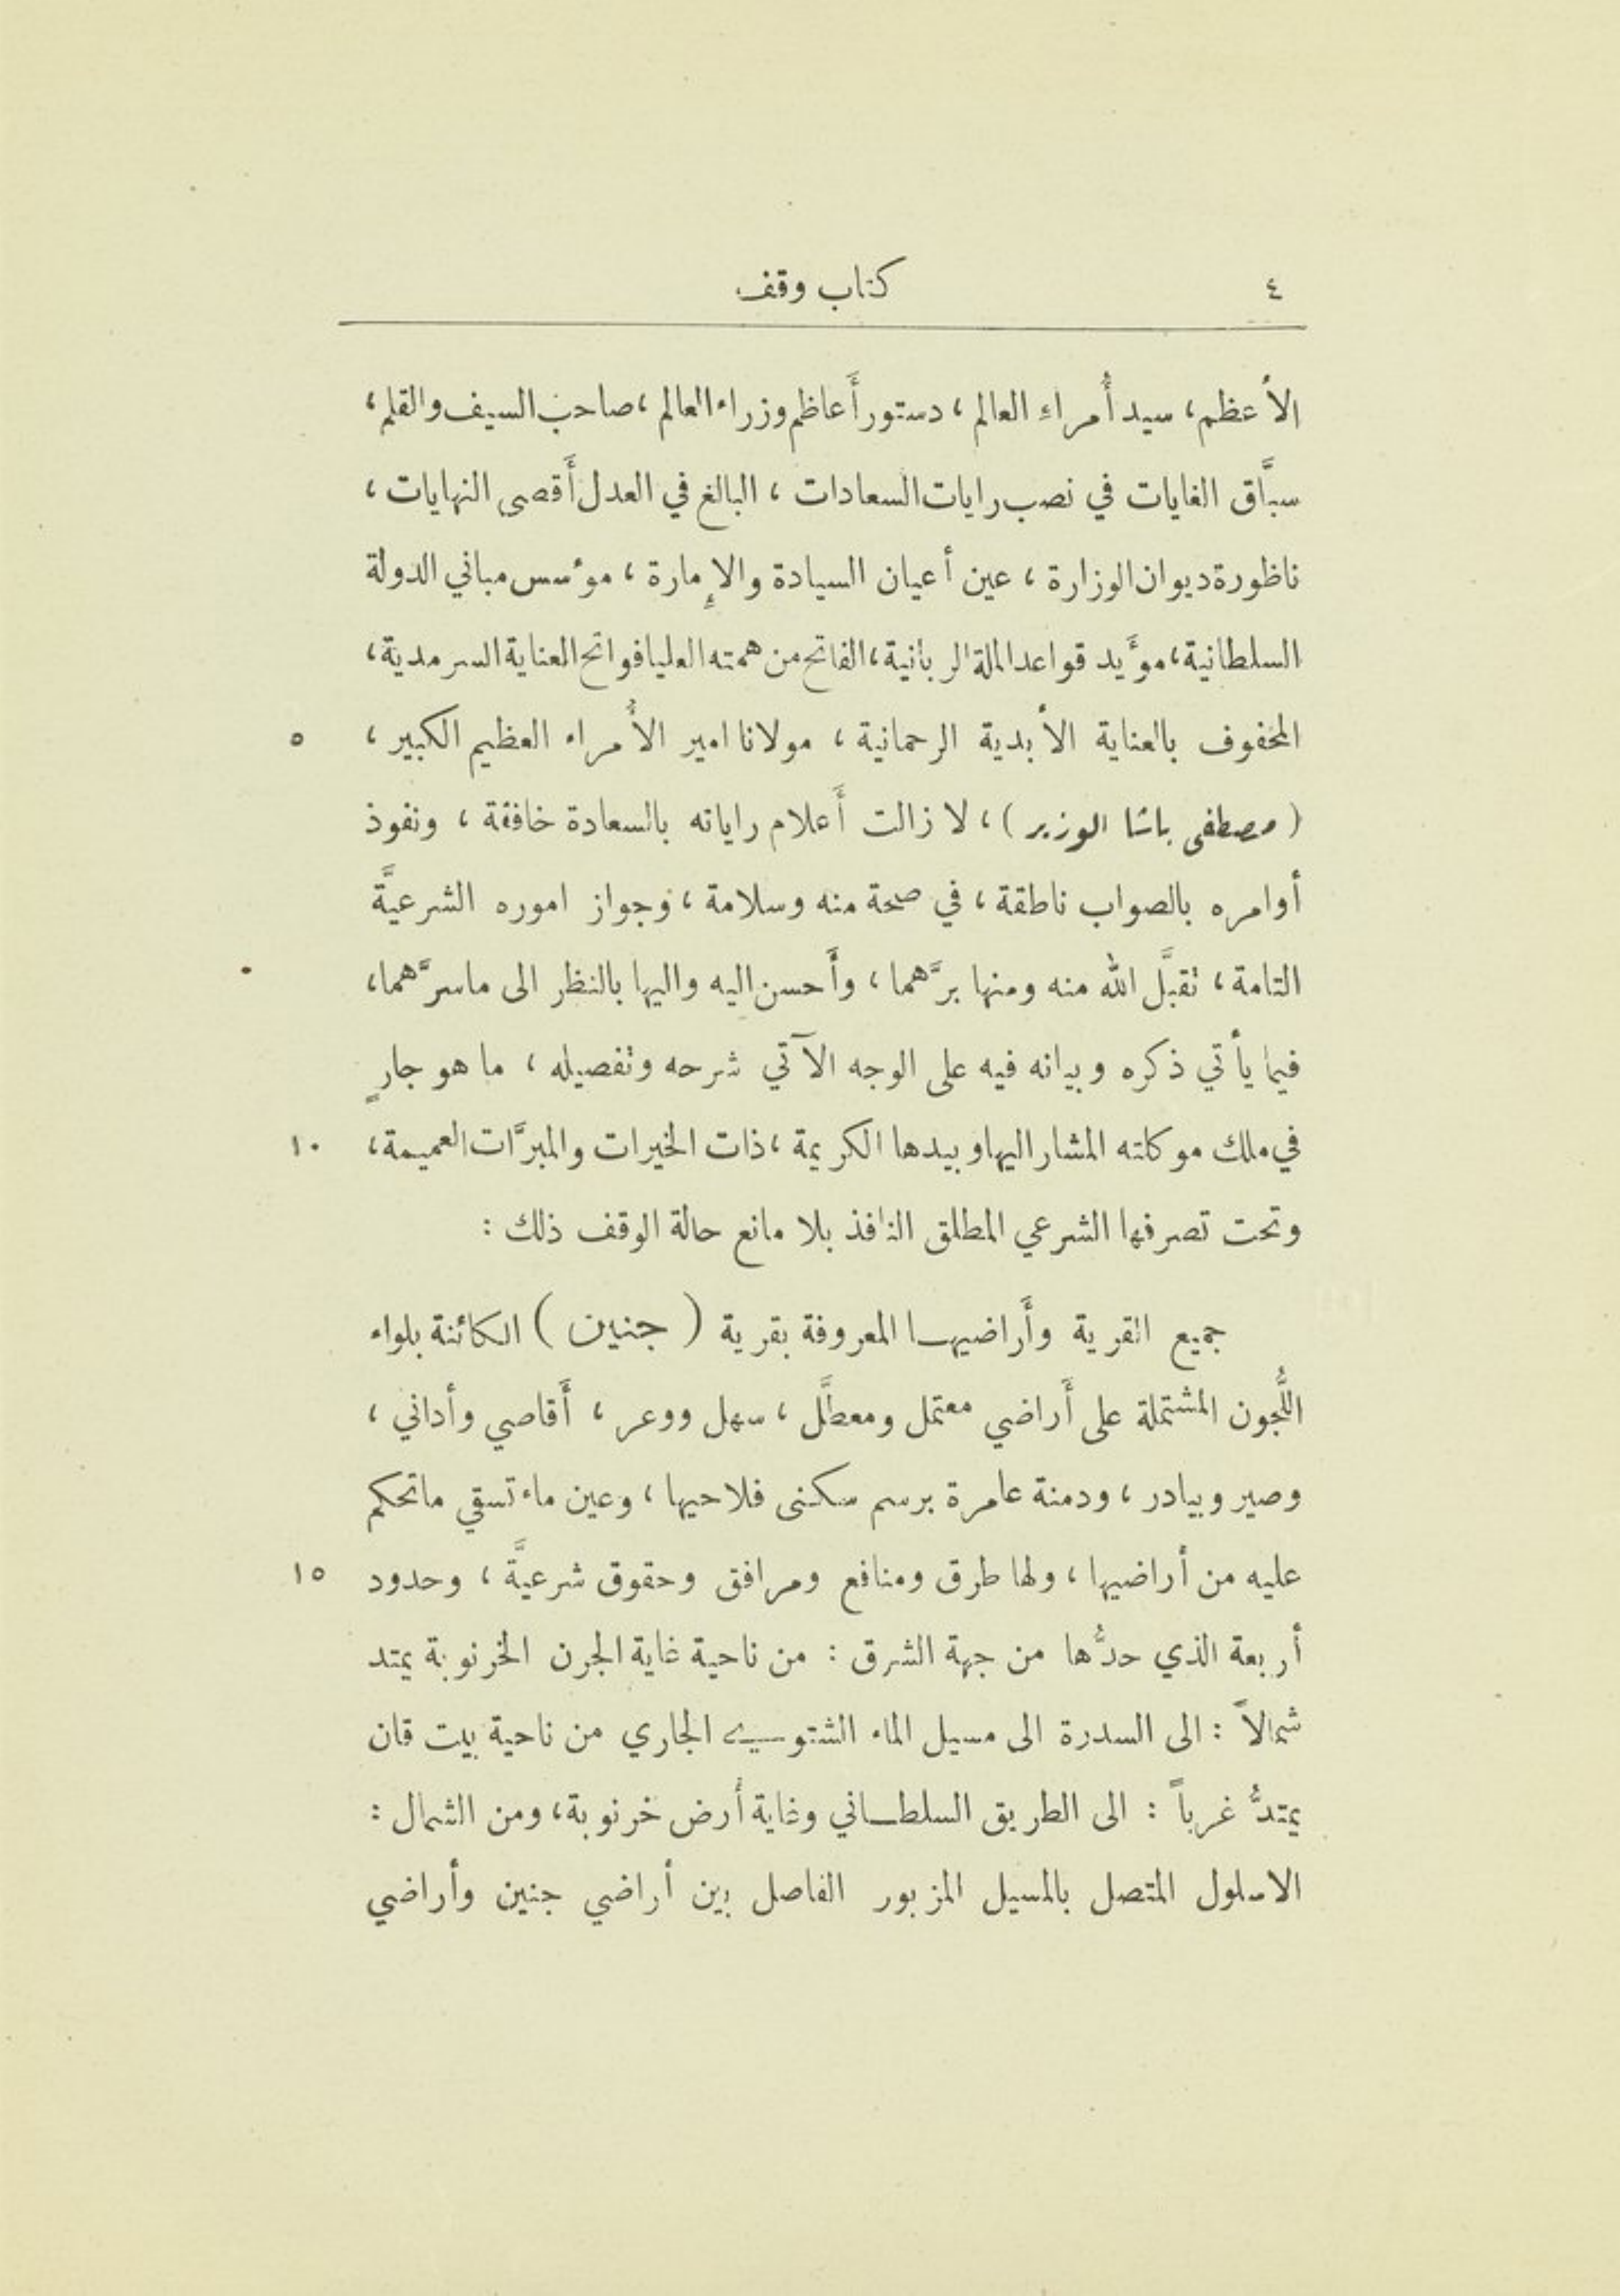 ٤
كتاب وقف
الأعظم، سيد أُمراءِ العالم، دستور أَعاظم وزراء العالم، صاحب السيف والقلم،
سبَّاق الغايات في نصب رايات السعادات، البالغ في العدل أَقصى النهايات،
ناظورة ديوان الوزارة، عين أعيان السيادة والإِمارة، موءسس مباني الدولة
السلطانية، موءَيد قواعد الملة الربانية، الفاتح من همته العليا فواتح العناية السرمدية،
المحفوف بالعناية الأبدية الرحمانية، مولانا امير الأُمراء العظيم الكبير، ٥
(مصطفى باشا الوزير)، لا زالت أَعلام راياته بالسعادة خافقة، ونفوذ
أوامره بالصواب ناطقة، في صحة منه وسلامة، وجواز اموره الشرعيَّة
التامة، تقبَّل الله منه ومنها برَّهما، وأَحسن اليه واليها بالنظر الى ماسرَّهما،
فيما يأتي ذكره وبيانه فيه على الوجه الآتي شرحه وتفصيله، ما هو جارٍ
في ملك موكلته المشار اليها وبيدها الكريمة، ذات الخيرات والمبرَّات العميمة، ١٠
وتحت تصرفها الشرعي المطلق النافذ بلا مانع حالة الوقف ذلك:
جميع القرية وأَراضيها المعروفة بقرية (جنين) الكائنة بلواء
اللُّجون المشتملة على أَراضي معتمل ومعطَّل، سهل ووعر، أَقاصي وأداني،
وصير وبيادر، ودمنة عامرة برسم سكنى فلاحيها، وعين ماء تسقي ماتحكم
عليه من أراضيها، ولها طرق ومنافع ومرافق وحقوق شرعيَّة، وحدود ١٥
أربعة الذي حدُّها من جهة الشرق: من ناحية غاية الجرن الخرنوبة يمتد
شمالاً: الى السدرة الى مسيل الماء الشتوي الجاري من ناحية بيت قان
يمتدُّ غرباً: الى الطريق السلطاني وغاية أَرض خرنوبة، ومن الشمال:
الاسلول المتصل بالمسيل المزبور الفاصل بين أراضي جنين وأراضي